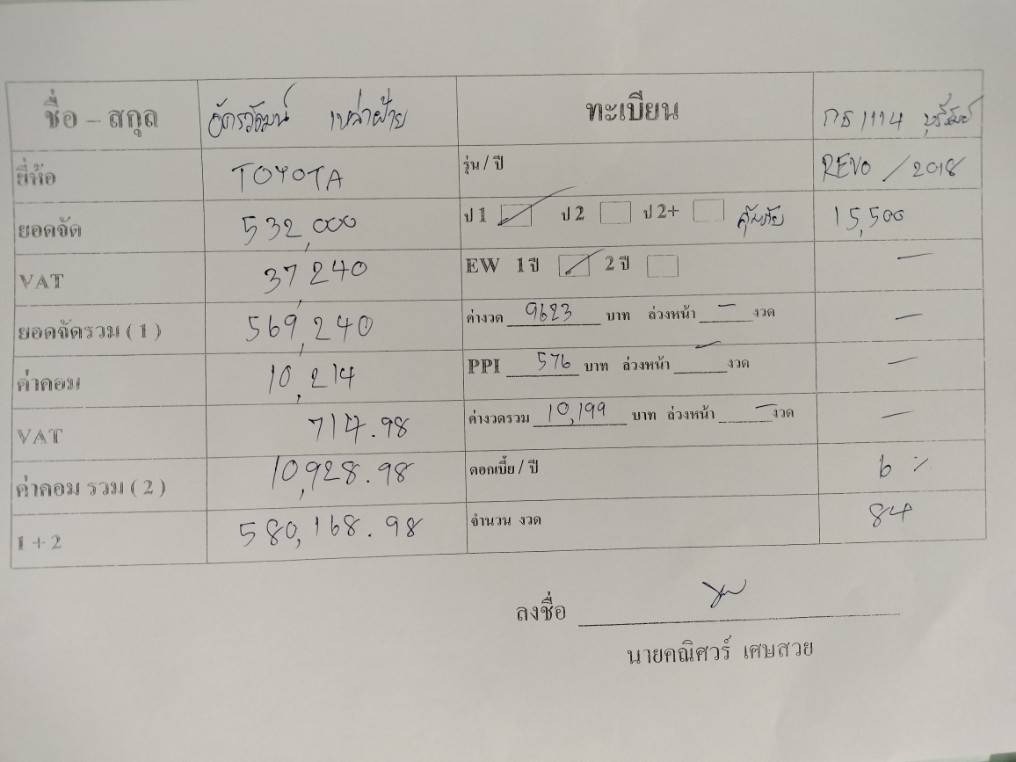 ชื่อ – สกุล อัครวัฒน์ เหล่าฝ้าย ทะเบียน 1114 บุรีรัมย์
ยี่ห้อ TOYOTA รุ่น / ปี REVO / 2018
ยอดจัด 532,000 ป 1 ป 2 ป 2+ คุ้มภัย 15,500
VAT 37,240 EW 1 ปี 2 ปี —
ยอดจัดรวม ( 1 ) 569,240 ค่างวด 9623 บาท ล่วงหน้า — งวด —
ค่าคอม 10,214 PPI 576 บาท ล่วงหน้า — งวด —
VAT 714.98 ค่างวดรวม 10,199 บาท ล่วงหน้า — งวด —
ค่าคอม รวม ( 2 ) 10,928.98 ดอกเบี้ย / ปี 6 %
1 + 2 580,168.98 จำนวน งวด 84
ลงชื่อ
นายคณิศวร์ เศษสวย